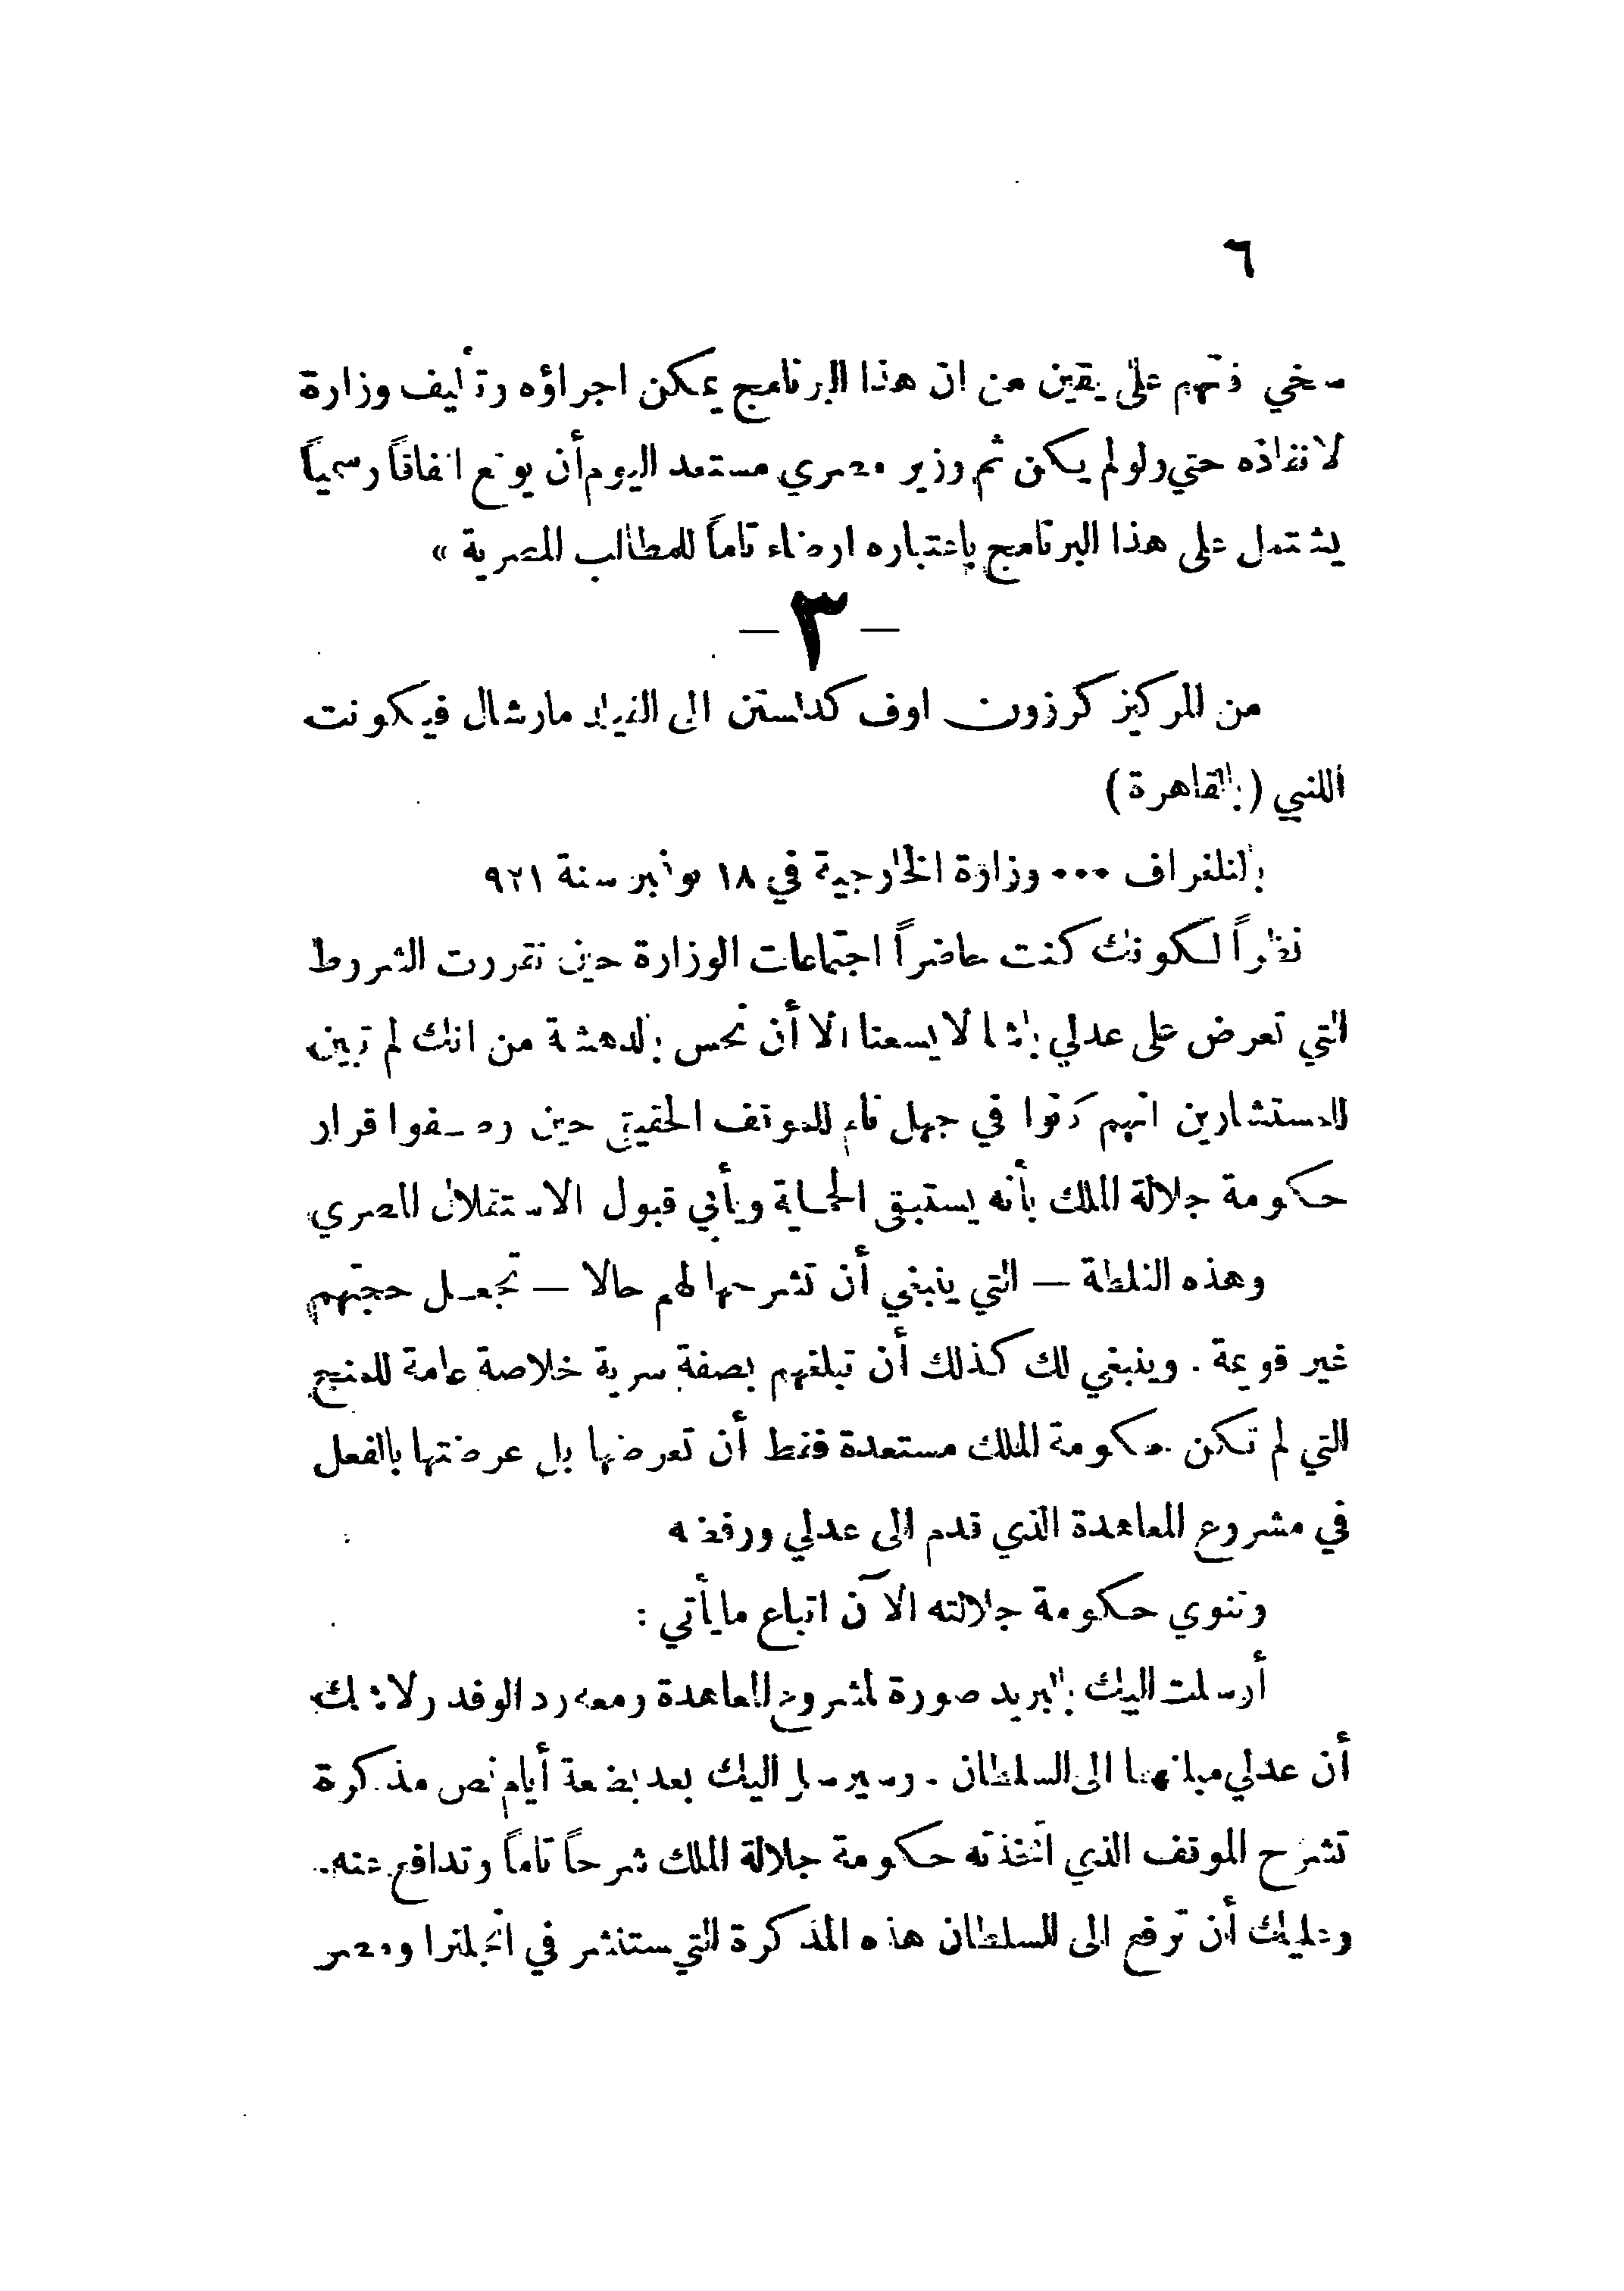 ٦
سخي فانهم على يقين من ان هذا البرنامج يمكن اجراؤه وتأليف وزارة
لانفاذه حتي ولو لم يكن ثم وزير مصري مستعد اليوم أن يوقع اتفاقاً رسمياً
يشتمل على هذا البرنامج باعتباره ارضاء تاماً للمطالب المصرية »
— ٣ —
من المركيز كرزون اوف كدلستن الى الفيلد مارشال فيكونت
اللنبي (بالقاهرة)
بالتلغراف ٠٠٠ وزارة الخارجية في ١٨ نوفمبر سنة ٩٢١
نظراً لكونك كنت حاضراً اجتماعات الوزارة حين تقررت الشروط
التي تعرض على عدلي باشا لا يسعنا الا أن نحس بالدهشة من انك لم تبين
للمستشارين انهم كانوا في جهل تام للموقف الحقيقي حين وصفوا قرار
حكومة جلالة الملك بأنه يستبقي الحماية ويأبي قبول الاستقلال المصري
وهذه الغلطة — التي ينبغي أن تشرحها لهم حالا — تجعل حجتهم
غير قويمة . وينبغي لك كذلك أن تبلغهم بصفة سرية خلاصة عامة للمنح
التي لم تكن حكومة الملك مستعدة فقط أن تعرضها بل عرضتها بالفعل
في مشروع المعاهدة الذي قدم الى عدلي ورفضه
وتنوي حكومة جلالته الآن اتباع ما يأتي :
أرسلت اليك بالبريد صورة لمشروع المعاهدة ومعه رد الوفد ولا شك
أن عدلي مبلغهما الى السلطان . وسيرسل اليك بعد بضعة أيام نص مذكرة
تشرح الموقف الذي اتخذته حكومة جلالة الملك شرحاً تاماً وتدافع عنه.
وعليك أن ترفع الى السلطان هذه المذكرة التي ستنشر في انجلترا ومصر